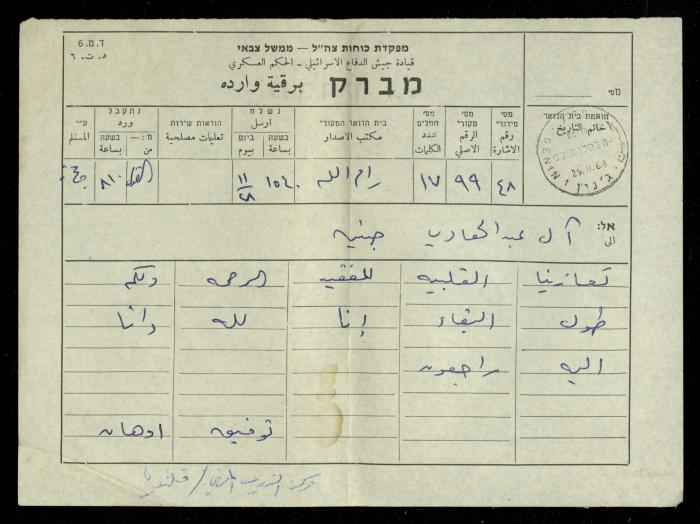 ד.ט.6
د.ت.٦
מפקדת כוחות צה"ל — ממשל צבאי
قيادة جيش الدفاع الاسرائيلي - الحكم العسكري
מברק برقية وارده
מס'
חותמת בית הדואר
خاتم التاريخ:
GENIN ג'נין
29.11.68
מס' סידורי
رقم الاشارة
מס' מקורי
الرقم الاصلي
מס' המלים
عدد الكلمات
בית הדואר המקורי
مكتب الاصدار
נשלח
ارسل
בשעה
بساعة
ביום
بيوم
הוראות שירות
تعليمات مصلحية
נתקבל
ورد
בשעה
بساعة
מ:—
من
ע"י
المستلم
٤٨ ٩٩ ١٧ رام الله ١٥٤٠ ٢٨/١١ ٨١٠
אל:
الى
آل عبد الهادي جنين
تعازينا القلبيه للفقيد الرحمه ولكم
طول البقاء إنا لله وانا
اليه راجعون
توفيق اوهان
مركز التدريب المهني / قلنديا